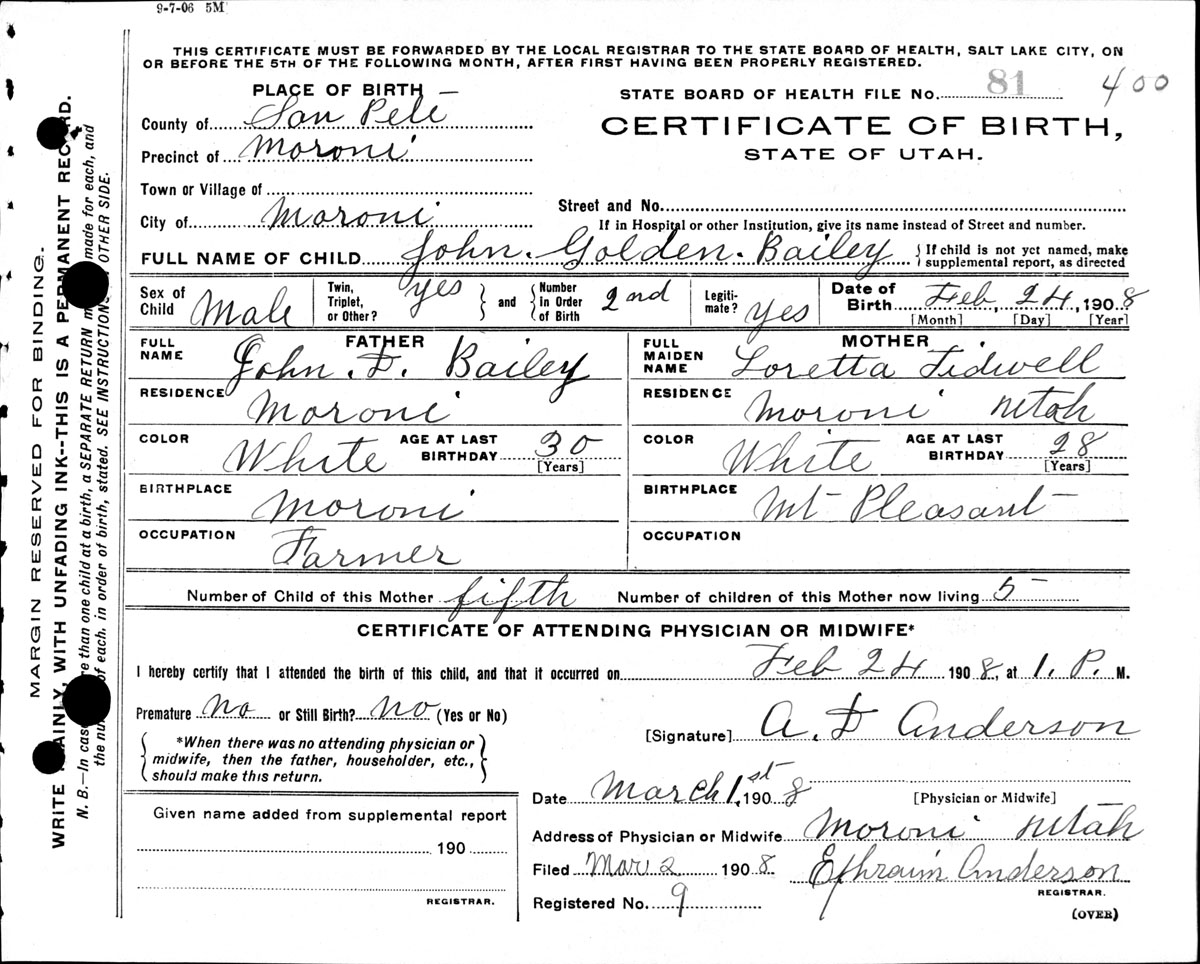 9-7-06 5M
THIS CERTIFICATE MUST BE FORWARDED BY THE LOCAL REGISTRAR TO THE STATE BOARD OF HEALTH, SALT LAKE CITY, ON
OR BEFORE THE 5TH OF THE FOLLOWING MONTH, AFTER FIRST HAVING BEEN PROPERLY REGISTERED.
PLACE OF BIRTH
STATE BOARD OF HEALTH FILE No. 81 400
County of San Pete
CERTIFICATE OF BIRTH,
Precinct of Moroni
STATE OF UTAH.
Town or Village of
City of Moroni
Street and No.
If in Hospital or other Institution, give its name instead of Street and number.
FULL NAME OF CHILD John. Golden. Bailey { If child is not yet named, make supplemental report, as directed
Sex of Child Male Twin, Triplet, or Other? yes } and { Number in Order of Birth 2nd Legitimate? yes Date of Birth Feb, 24, 1908
[Month] [Day] [Year]
FATHER
FULL NAME John. D. Bailey
RESIDENCE Moroni
COLOR White AGE AT LAST BIRTHDAY 30 [Years]
BIRTHPLACE Moroni
OCCUPATION Farmer
MOTHER
FULL MAIDEN NAME Loretta Tidwell
RESIDENCE Moroni Utah
COLOR White AGE AT LAST BIRTHDAY 28 [Years]
BIRTHPLACE Mt Pleasant
OCCUPATION
Number of Child of this Mother fifth Number of children of this Mother now living 5
CERTIFICATE OF ATTENDING PHYSICIAN OR MIDWIFE*
I hereby certify that I attended the birth of this child, and that it occurred on Feb 24 1908, at 1. P. M.
Premature No or Still Birth? No (Yes or No)
[Signature] A. D Anderson
{ *When there was no attending physician or midwife, then the father, householder, etc., should make this return. }
Date March 1st, 1908
[Physician or Midwife]
Given name added from supplemental report
190
REGISTRAR.
Address of Physician or Midwife Moroni Utah
Filed Mar 2 1908 Ephraim Anderson
REGISTRAR.
Registered No. 9
(OVER)
MARGIN RESERVED FOR BINDING.
WRITE PLAINLY, WITH UNFADING INK--THIS IS A PERMANENT RECORD.
N. B.—In case more than one child at a birth, a SEPARATE RETURN must made for each, and
the number of each. in order of birth, stated. SEE INSTRUCTIONS OTHER SIDE.